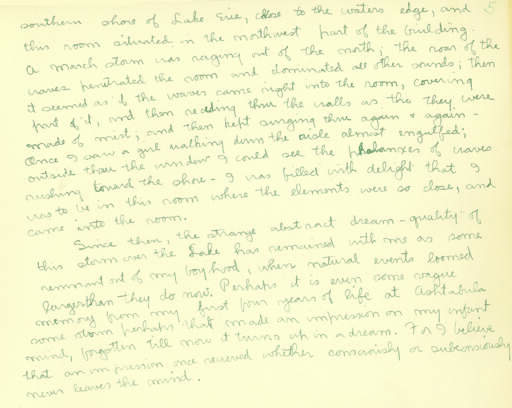 southern shore of Lake Erie, close to the waters edge, and 5
this room situated in the northwest part of the building.
A March storm was raging out of the north; the roar of the
waves penetrated the room and dominated all other sounds; then
it seemed as if the waves came right into the room, covering
part of it, and then receding thru the walls as tho they were
made of mist; and then kept surging thru again & again -
Once I saw a girl walking down the aisle almost engulfed;
outside thru the window I could see the phalanxes of waves
rushing toward the shore - I was filled with delight that I
was to be in this room where the elements were so close, and
came into the room.
Since then, the strange abstract dream-quality of
this storm over the Lake has remained with me as some
remnant out of my boyhood, when natural events loomed
larger than they do now. Perhaps it is even some vague
memory from my first four years of life at Ashtabula
some storm perhaps that made an impression on my infant
mind, forgotten till now it turns up in a dream. For I believe
that an impression once received whether consciously or subconsciously
never leaves the mind.